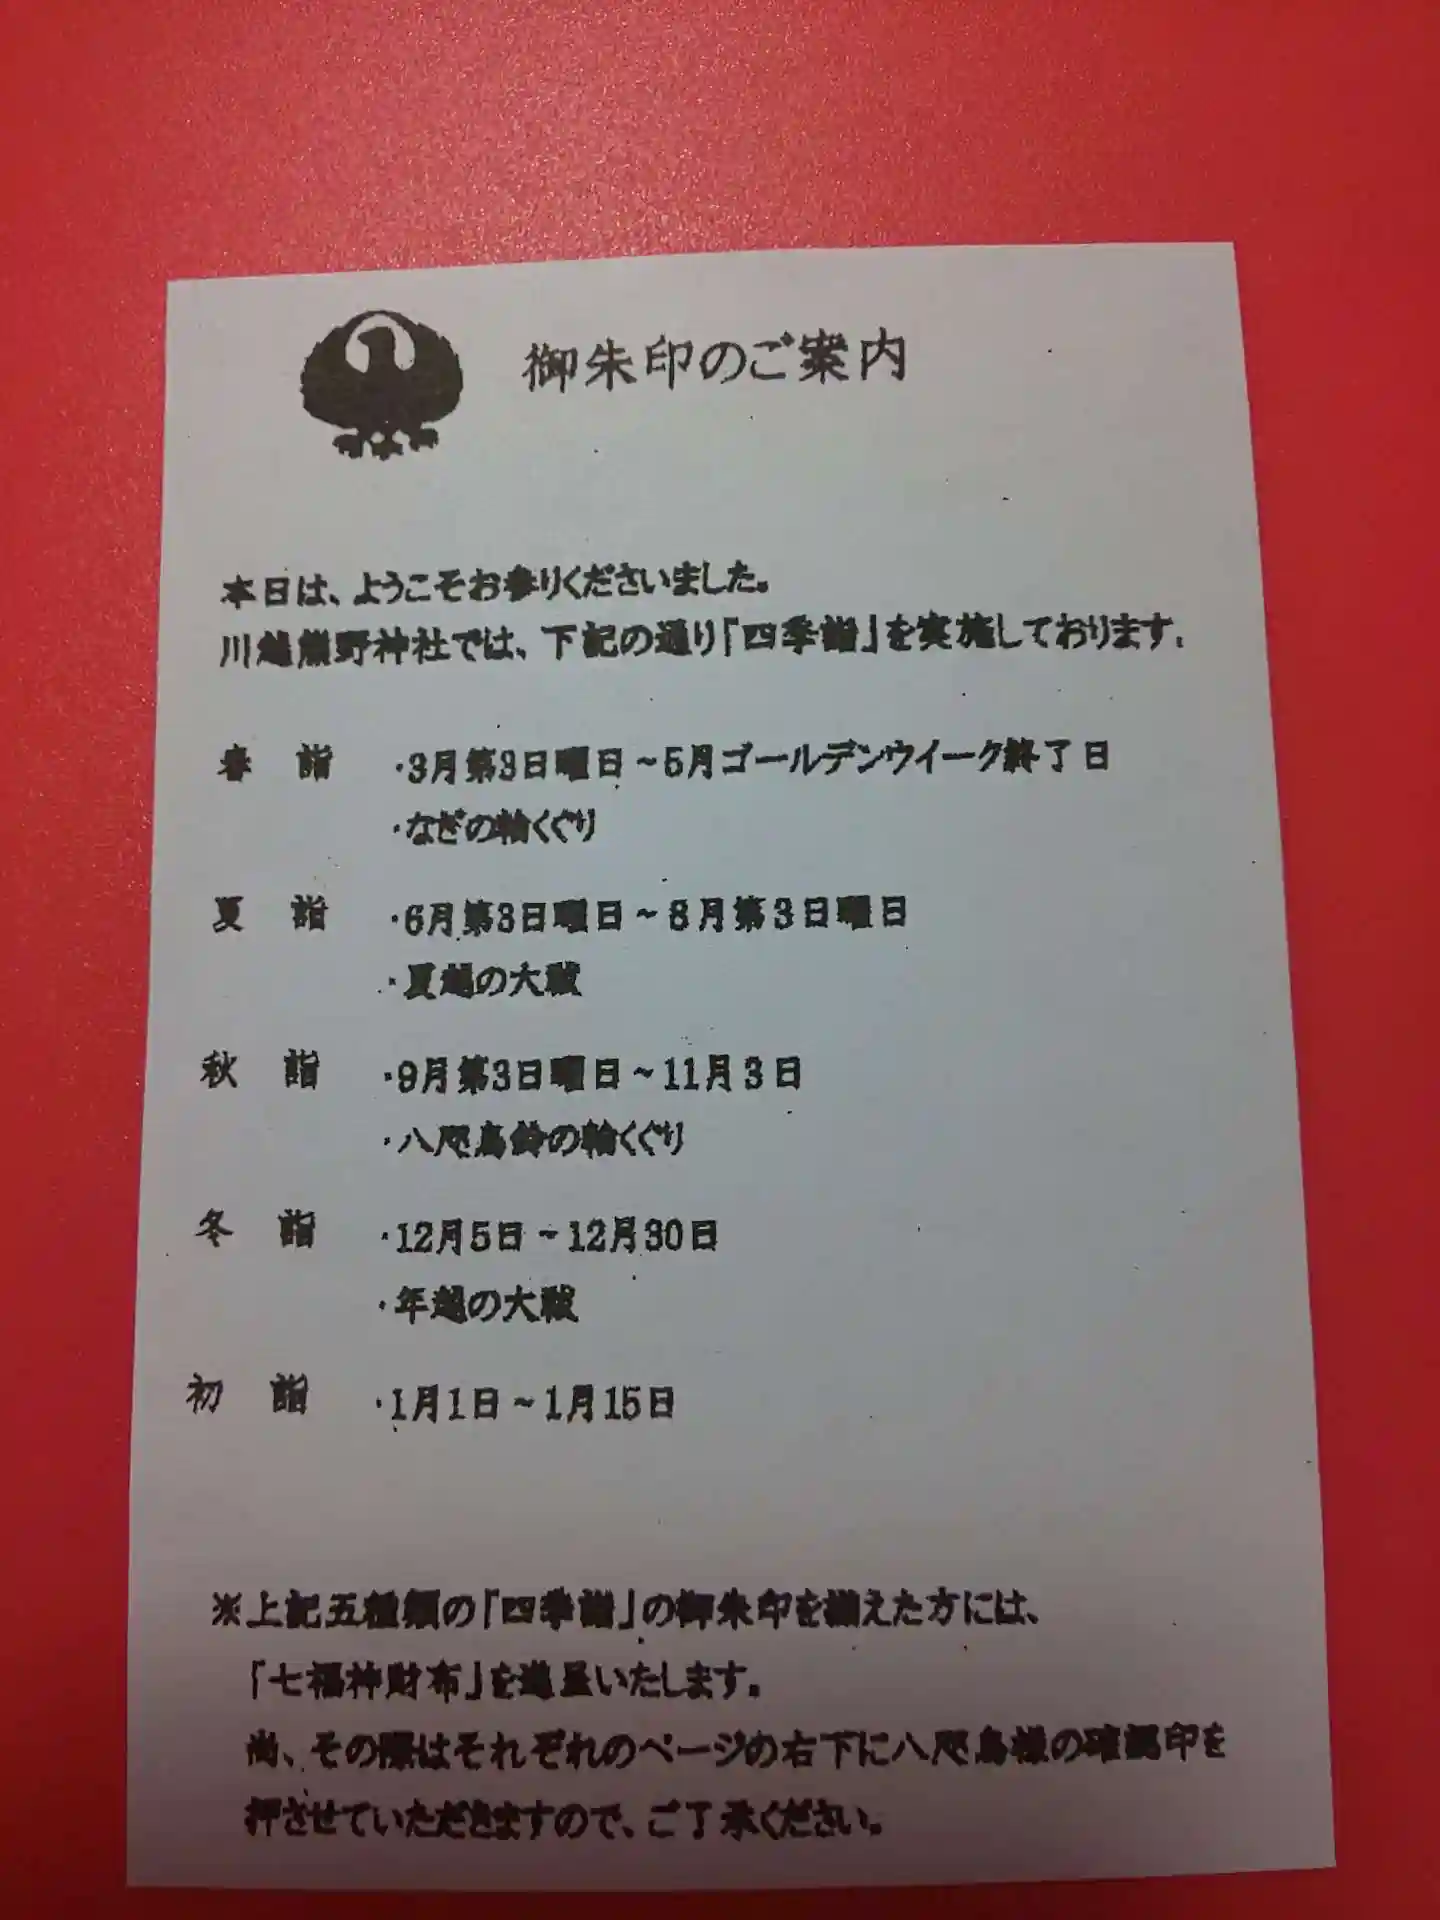 御朱印のご案内
本日は、ようこそお参りくださいました。
川越熊野神社では、下記の通り「四季詣」を実施しております。
春　詣　・3月第3日曜日～5月ゴールデンウイーク終了日
・なぎの輪くぐり
夏　詣　・6月第3日曜日～8月第3日曜日
・夏越の大祓
秋　詣　・9月第3日曜日～11月3日
・八咫烏鈴の輪くぐり
冬　詣　・12月5日～12月30日
・年越の大祓
初　詣　・1月1日～1月15日
※上記五種類の「四季詣」の御朱印を揃えた方には、
「七福神財布」を進呈いたします。
尚、その際はそれぞれのページの右下に八咫烏様の確認印を
押させていただきますので、ご了承ください。